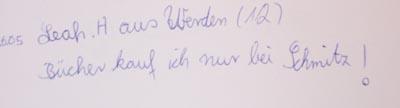 605 Leah.H aus Werden (12)
Bücher kauf ich nur bei Schmitz!